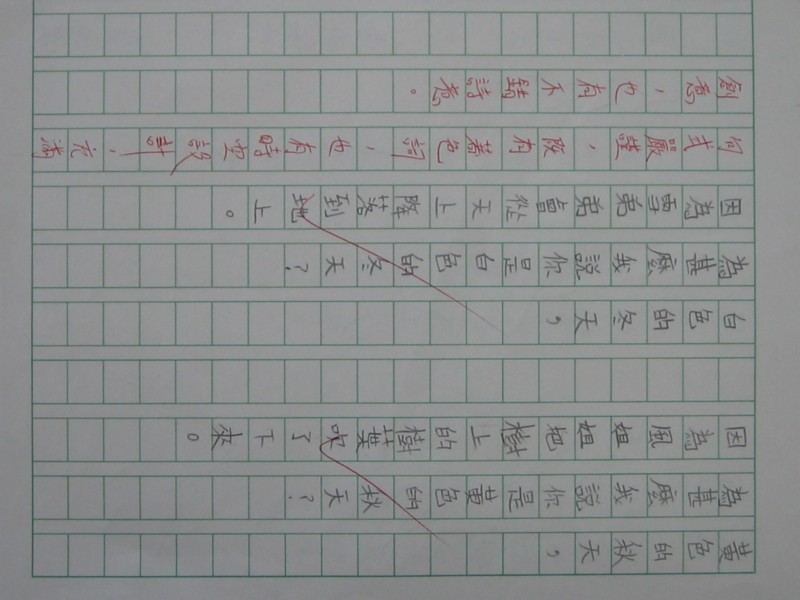 黃色的秋天，
為甚麼我說你是黃色的秋天？
因為風姐姐把樹上的樹葉吹了下來。
白色的冬天，
為甚麼我說你是白色的冬天？
因為雪弟弟會從天上降落到地上。
句式嚴謹，既有著色詞，也有時空設計，充滿
創意，也有不錯詩意。